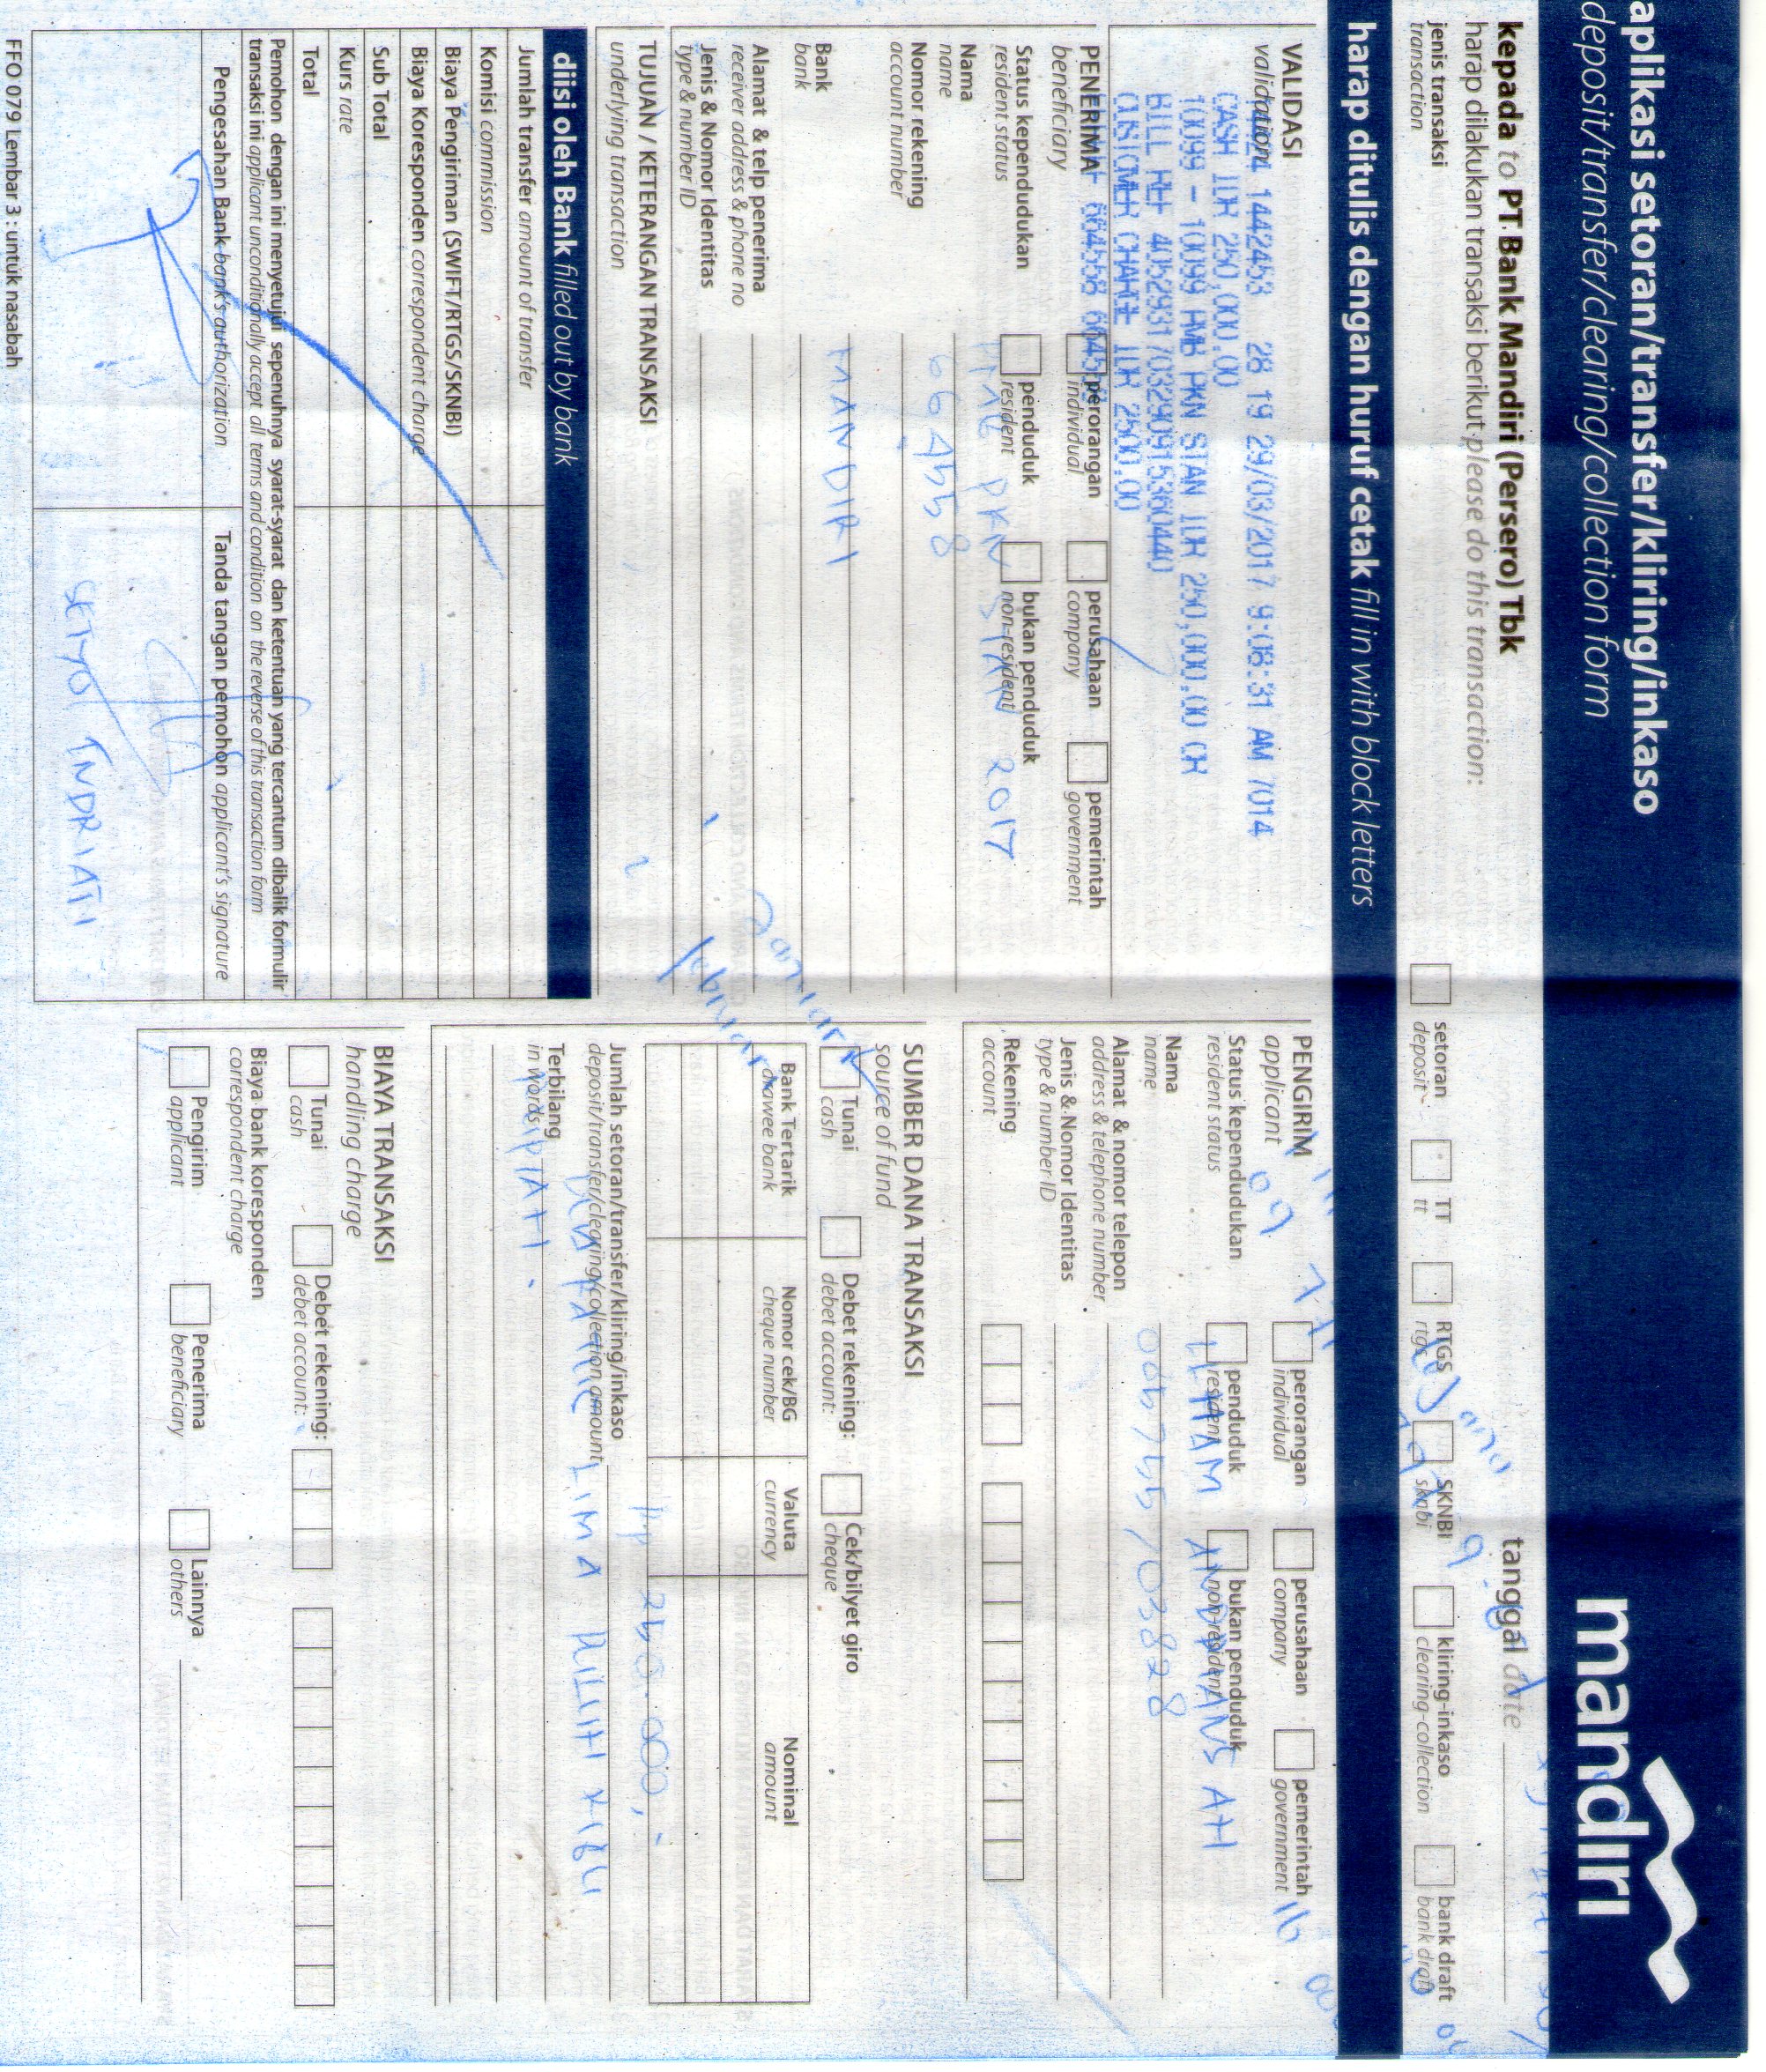 aplikasi setoran/transfer/kliring/inkaso
deposit/transfer/clearing/collection form
mandiri
kepada to PT Bank Mandiri (Persero) Tbk
harap dilakukan transaksi berikut please do this transaction:
tanggal date
jenis transaksi
transaction
setoran
deposit
TT
tt
RTGS
rtgs
SKNBI
sknbi
kliring-inkaso
clearing-collection
bank draft
bank draft
harap ditulis dengan huruf cetak fill in with block letters
VALIDASI
validation
14424 1442453 28 19 29/03/2017 9:08:31 AM 7014
CASH IDR 250,000.00
10099 - 10099 PMB PKN STAN IDR 250,000.00 CR
BILL REF 40529317032909153604​40
CUSTOMER CHARGE IDR 2500.00
664558 664558
PENERIMA
beneficiary
perorangan
individual
perusahaan
company
pemerintah
government
Status kependudukan
resident status
penduduk
resident
bukan penduduk
non-resident
PMB PKN STAN 2017
Nama
name
664558
Nomor rekening
account number
MANDIRI
Bank
bank
Alamat & telp penerima
receiver address & phone no
Jenis & Nomor Identitas
type & number ID
januari
februari
TUJUAN / KETERANGAN TRANSAKSI
underlying transaction
diisi oleh Bank filled out by bank
Jumlah transfer amount of transfer
Komisi commission
Biaya Pengiriman (SWIFT/RTGS/SKNBI)
Biaya Koresponden correspondent charge
Sub Total
Kurs rate
Total
Pemohon dengan ini menyetujui sepenuhnya syarat-syarat dan ketentuan yang tercantum dibalik formulir
transaksi ini applicant unconditionally accept all terms and condition on the reverse of this transaction form
Pengesahan Bank bank's authorization
Tanda tangan pemohon applicant's signature
SETYO INDRIATI
FFO 079 Lembar 3 : untuk nasabah
PENGIRIM
applicant
perorangan
individual
perusahaan
company
pemerintah
government
Status kependudukan
resident status
penduduk
resident
bukan penduduk
non-resident
ILHAM ANDRIANSAH
Nama
name
085755703828
Alamat & nomor telepon
address & telephone number
Jenis & Nomor Identitas
type & number ID
Rekening
account
SUMBER DANA TRANSAKSI
source of fund
Tunai
cash
Debet rekening:
debet account:
Cek/bilyet giro
cheque
Bank Tertarik
drawee bank
Nomor cek/BG
cheque number
Valuta
currency
Nominal
amount
Rp 250.000,-
Jumlah setoran/transfer/kliring/inkaso
deposit/transfer/clearing/collection amount
DUA RATUS LIMA PULUH RIBU
Terbilang
in words
RUPIAH.
BIAYA TRANSAKSI
handling charge
Tunai
cash
Debet rekening:
debet account:
Biaya bank koresponden
correspondent charge
Pengirim
applicant
Penerima
beneficiary
Lainnya
others